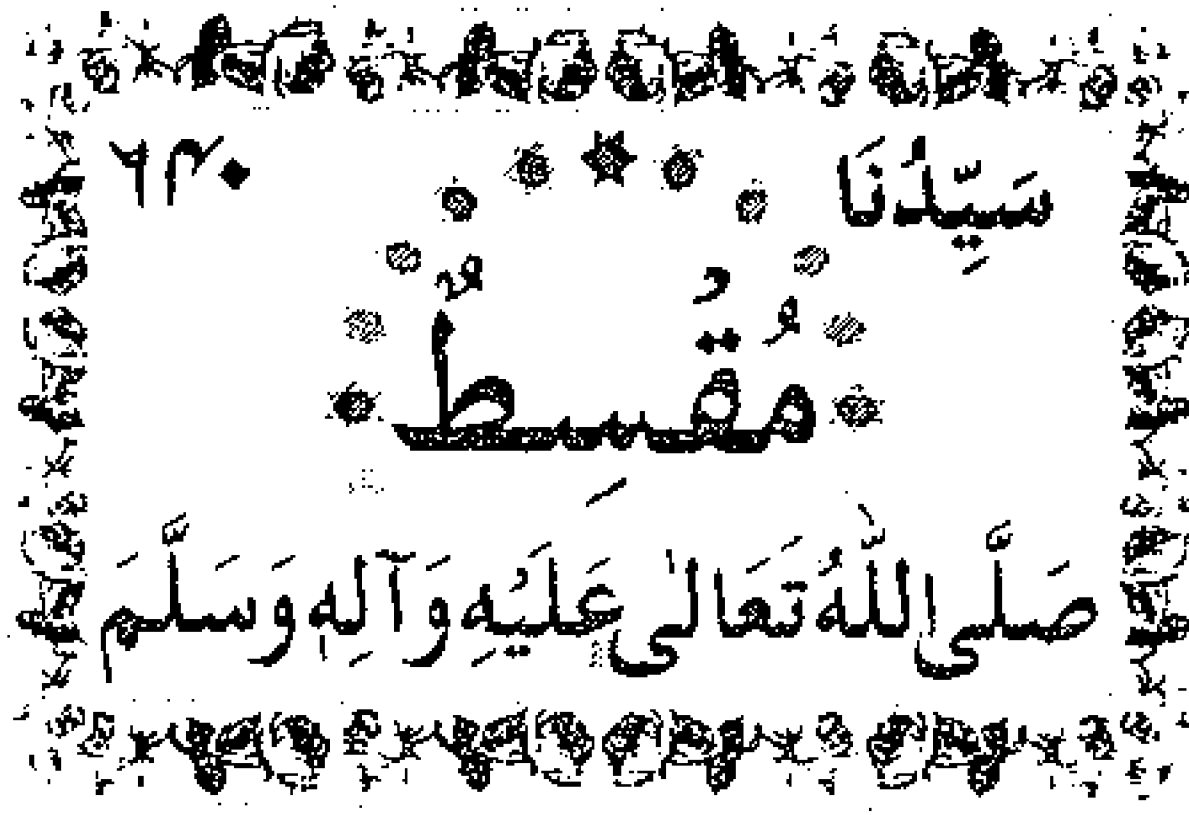 سَيِّدُنَا ۶۴۰
مُقْسِطٌ
صَلَّى اللّٰهُ تَعَالٰى عَلَيْهِ وَآلِهٖ وَسَلَّمَ